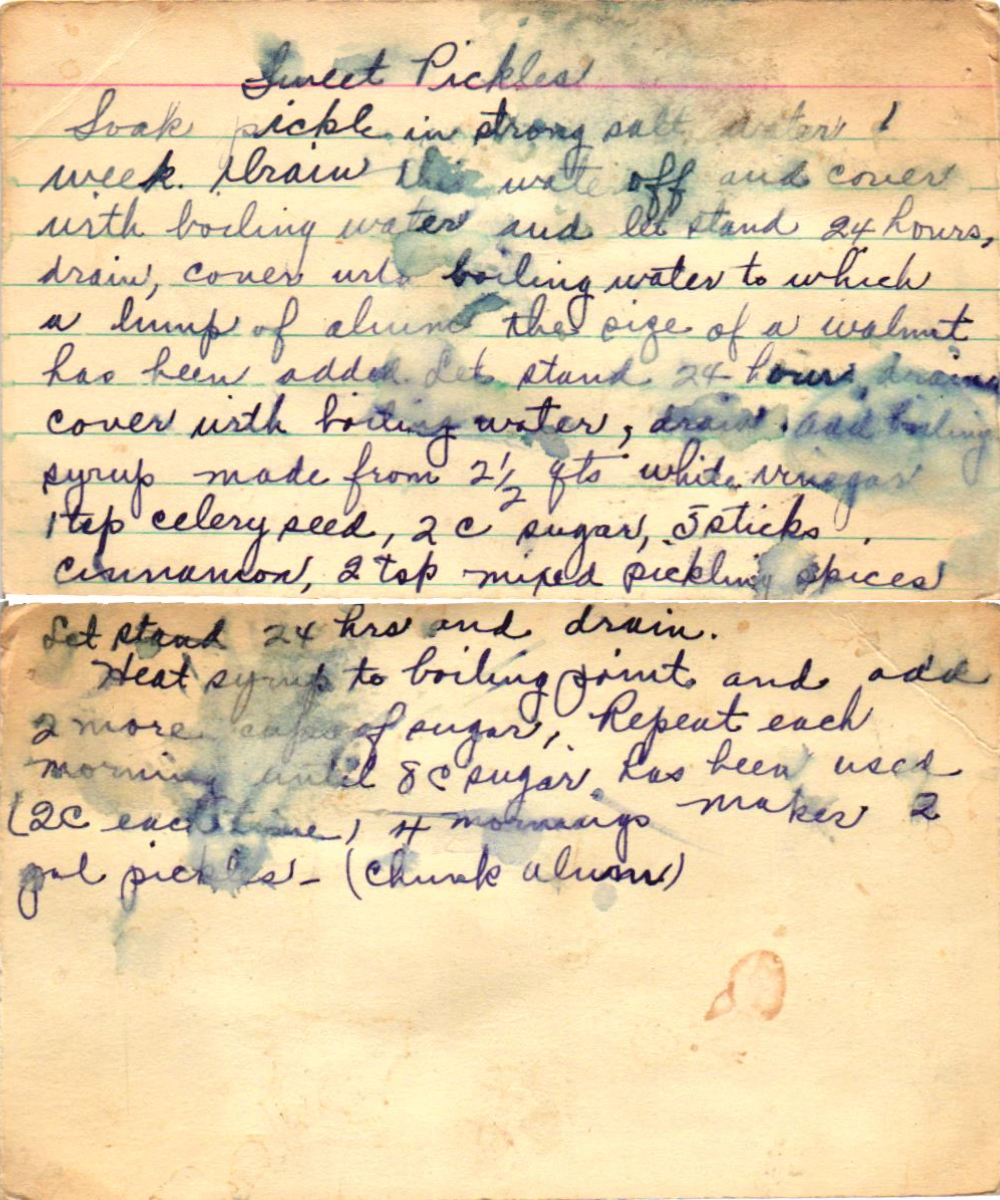 Sweet Pickles
Soak pickle in strong salt water 1
week. Drain this wate off and cover
with boiling water and let stand 24 hours,
drain, cover with boiling water to which
a lump of alum the size of a walnut
has been added. Let stand 24 hours, drain
cover with boiling water, drain. add boiling
syrup made from 2 1/2 qts white vinegar
1 tsp celery seed, 2 c sugar, 5 sticks
cinnamon, 2 tsp mixed pickling spices
Let stand 24 hrs and drain.
Heat syrup to boiling point and add
2 more cups of sugar, Repeat each
morning until 8 C sugar has been used
(2C each time) 4 mornings makes 2
gal pickles - (chunk alum)